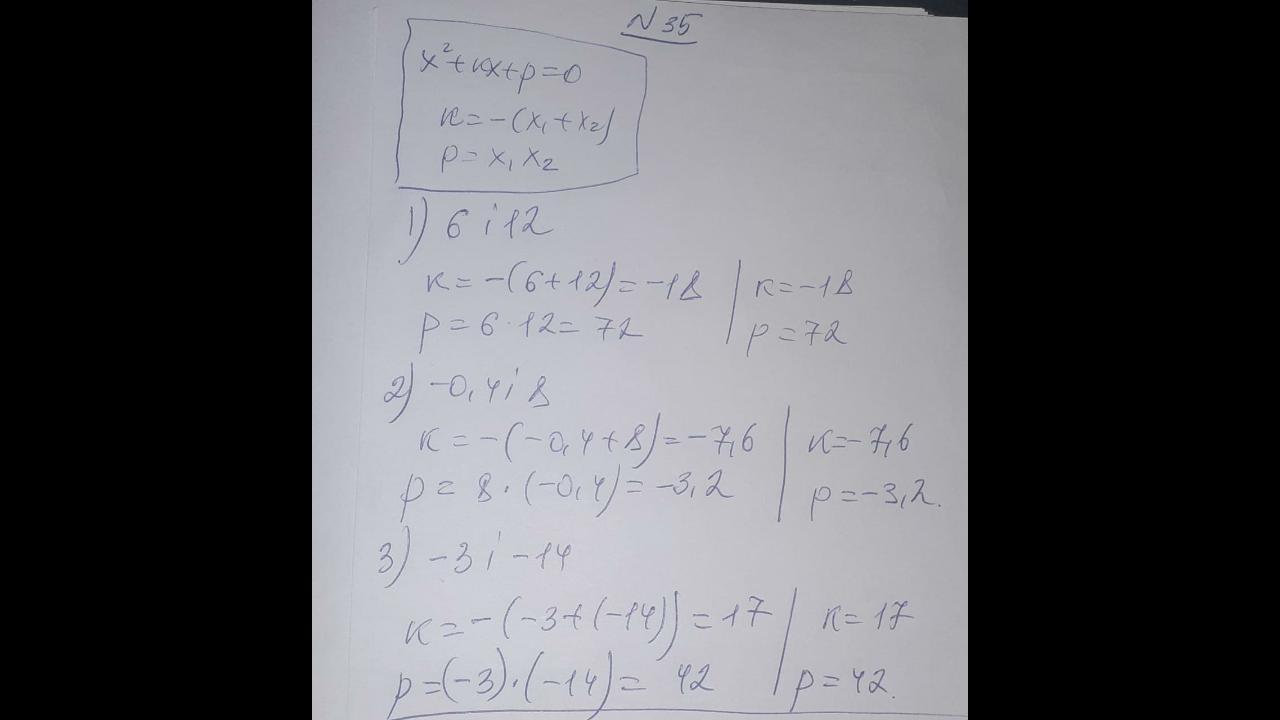 N 35
x²+кx+p=0
к=-(x₁+x₂)
p=x₁x₂
1) 6 i 12
к=-(6+12)=-18 | к=-18
p=6·12=72 | p=72
2) -0,4 i 8
к=-(-0,4+8)=-7,6 | к=-7,6
p=8·(-0,4)=-3,2 | p=-3,2.
3) -3 i -14
к=-(-3+(-14))=17 | к=17
p=(-3)·(-14)=42 | p=42.